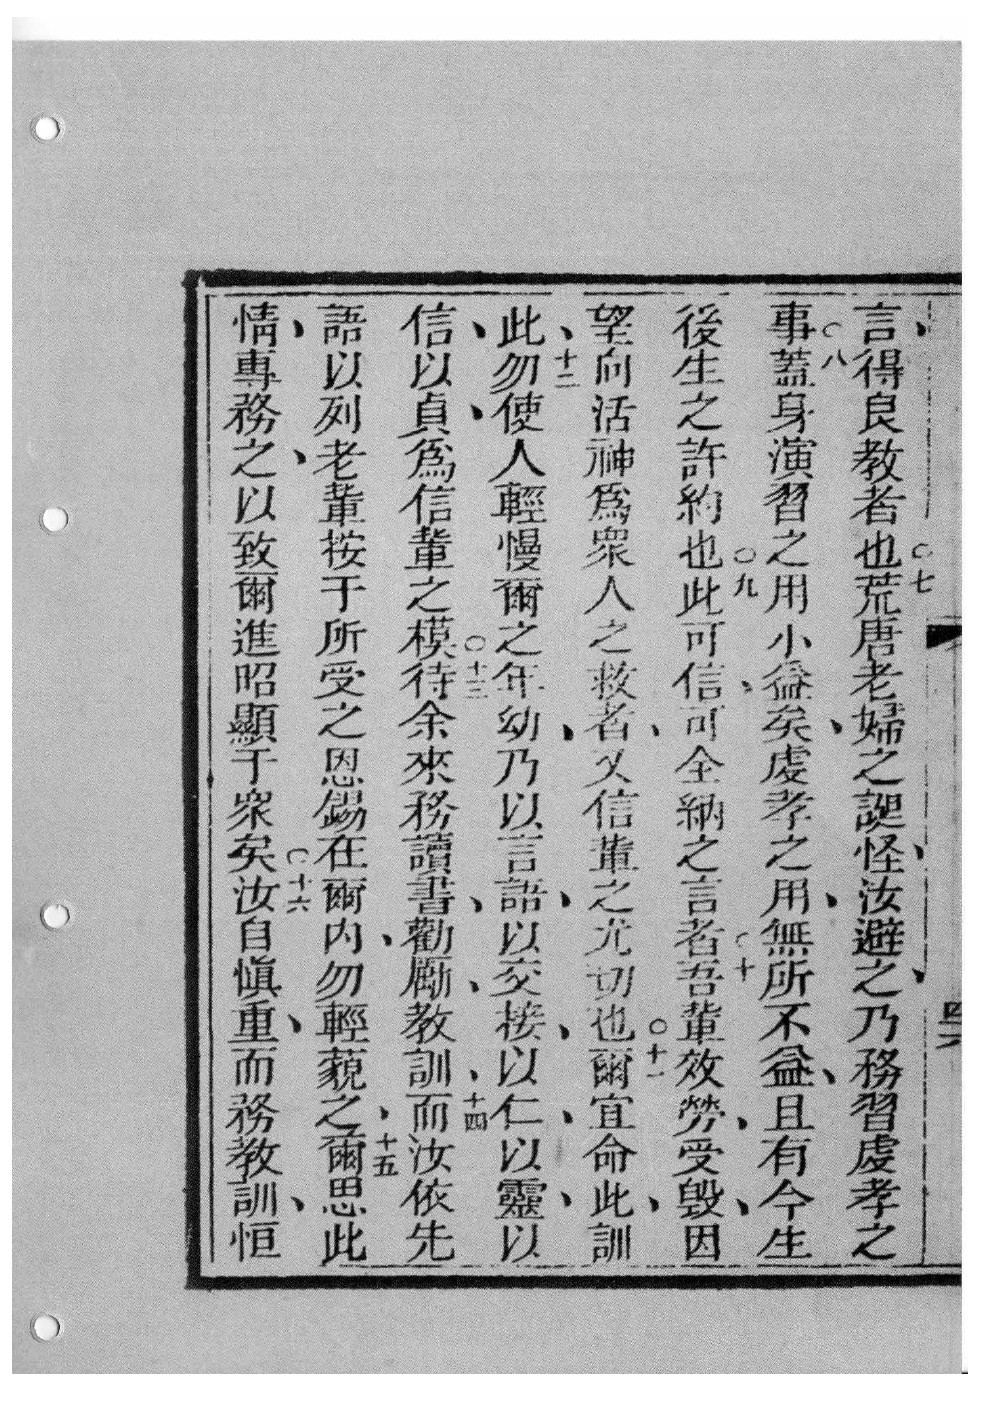 言得良教者也〇七荒唐老婦之誕怪汝避之乃務習虔孝之
事〇八蓋身演習之用小益矣虔孝之用無所不益且有今生
後生之許約也〇九此可信可全納之言者〇十吾輩效勞受毀因
望向活神為眾人之救者又信輩之尤切也〇十一爾宜命此訓
此十二勿使人輕慢爾之年幼乃以言語以交接以仁以靈以
信以貞為信輩之模〇十三待余來務讀書勸勵教訓十四而汝依先
語以列老輩按于所受之恩錫在爾內勿輕藐之十五爾思此
情專務之以致爾進昭顯于眾矣〇十六汝自慎重而務教訓恒